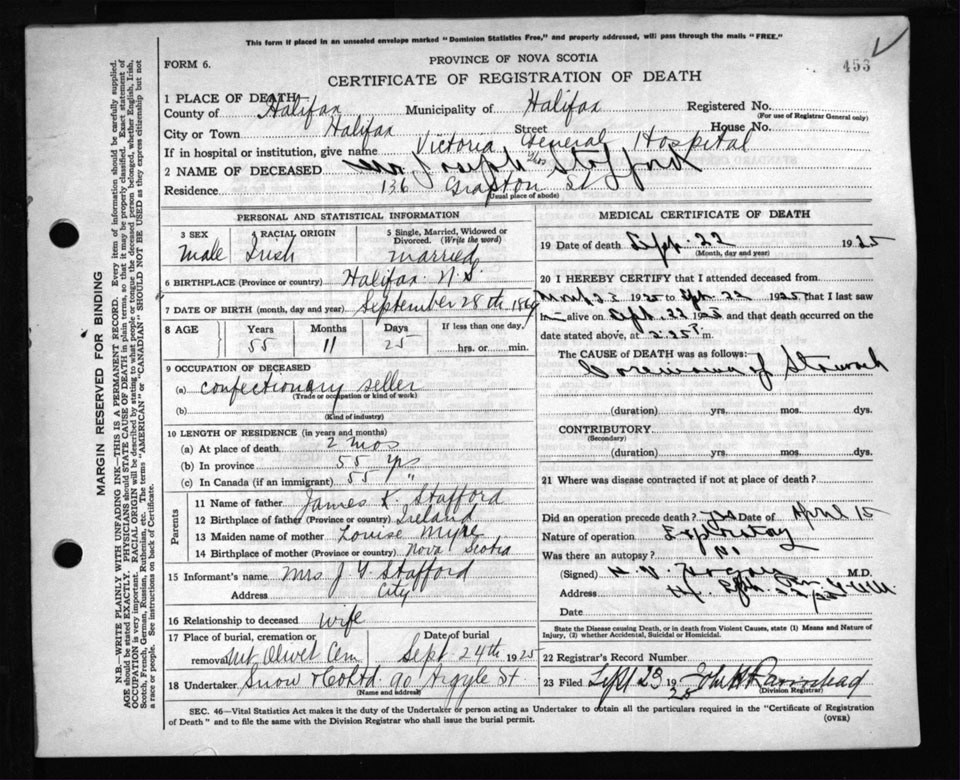 This form if placed in an unsealed envelope marked "Dominion Statistics Free," and properly addressed, will pass through the mails "FREE."
453
FORM 6.
PROVINCE OF NOVA SCOTIA
CERTIFICATE OF REGISTRATION OF DEATH
MARGIN RESERVED FOR BINDING
N.B.—WRITE PLAINLY WITH UNFADING INK—THIS IS A PERMANENT RECORD. Every item of information should be carefully supplied.
AGE should be stated EXACTLY. PHYSICIANS should STATE CAUSE OF DEATH in plain terms, so that it may be properly classified. Exact statement of
OCCUPATION is very important. RACIAL ORIGIN will be described by stating to what people or tongue the deceased person belonged, whether English, Irish,
Scotch, French, German, Russian, Ruthenian, etc. The terms "AMERICAN" or "CANADIAN" SHOULD NOT BE USED as they express citizenship but not
a race or people. See instructions on back of Certificate.
1 PLACE OF DEATH
County of Halifax Municipality of Halifax Registered No.
(For use of Registrar General only)
City or Town Halifax Street House No.
If in hospital or institution, give name Victoria General Hospital
2 NAME OF DECEASED Joseph Stafford
Residence 136 Grafton St
(Usual place of abode)
PERSONAL AND STATISTICAL INFORMATION
3 SEX 4 RACIAL ORIGIN 5 Single, Married, Widowed or Divorced. (Write the word)
Male Irish married
6 BIRTHPLACE (Province or country) Halifax N.S.
7 DATE OF BIRTH (month, day and year) September 28th 1869
8 AGE Years Months Days If less than one day.
55 11 25 hrs. or min.
9 OCCUPATION OF DECEASED
(a) confectionary seller
(Trade or occupation or kind of work)
(b)
(Kind of industry)
10 LENGTH OF RESIDENCE (in years and months)
(a) At place of death 2 mos
(b) In province 55 yrs
(c) In Canada (if an immigrant) 55 "
Parents
11 Name of father James K. Stafford
12 Birthplace of father (Province or country) Ireland
13 Maiden name of mother Louise
14 Birthplace of mother (Province or country) Nova Scotia
15 Informant's name Mrs J Stafford
Address City
16 Relationship to deceased wife
17 Place of burial, cremation or removal Mt Olivet Cem Date of burial Sept 24th 1925
18 Undertaker Snow & Co Ltd. 90 Argyle St.
(Name and address)
MEDICAL CERTIFICATE OF DEATH
19 Date of death Sept. 22 1925
(Month, day and year)
20 I HEREBY CERTIFY that I attended deceased from
1925 to Sept. 22 1925 that I last saw
h alive on Sept. 22 1925 and that death occurred on
date stated above, at 2.25 P. m.
The CAUSE OF DEATH was as follows:
Carcinoma of Stomach
(duration) yrs. mos. dys.
CONTRIBUTORY
(Secondary)
(duration) yrs. mos. dys.
21 Where was disease contracted if not at place of death?
Did an operation precede death? yes Date of April 15
Nature of operation Exploratory
Was there an autopsy? No
(Signed) Hogan M.D.
Address
Date
State the Disease causing Death, or in death from Violent Causes, state (1) Means and Nature of Injury, (2) whether Accidental, Suicidal or Homicidal.
22 Registrar's Record Number
23 Filed Sept 23 1925 John
(Division Registrar)
SEC. 46—Vital Statistics Act makes it the duty of the Undertaker or person acting as Undertaker to obtain all the particulars required in the "Certificate of Registration
of Death" and to file the same with the Division Registrar who shall issue the burial permit.
(OVER)